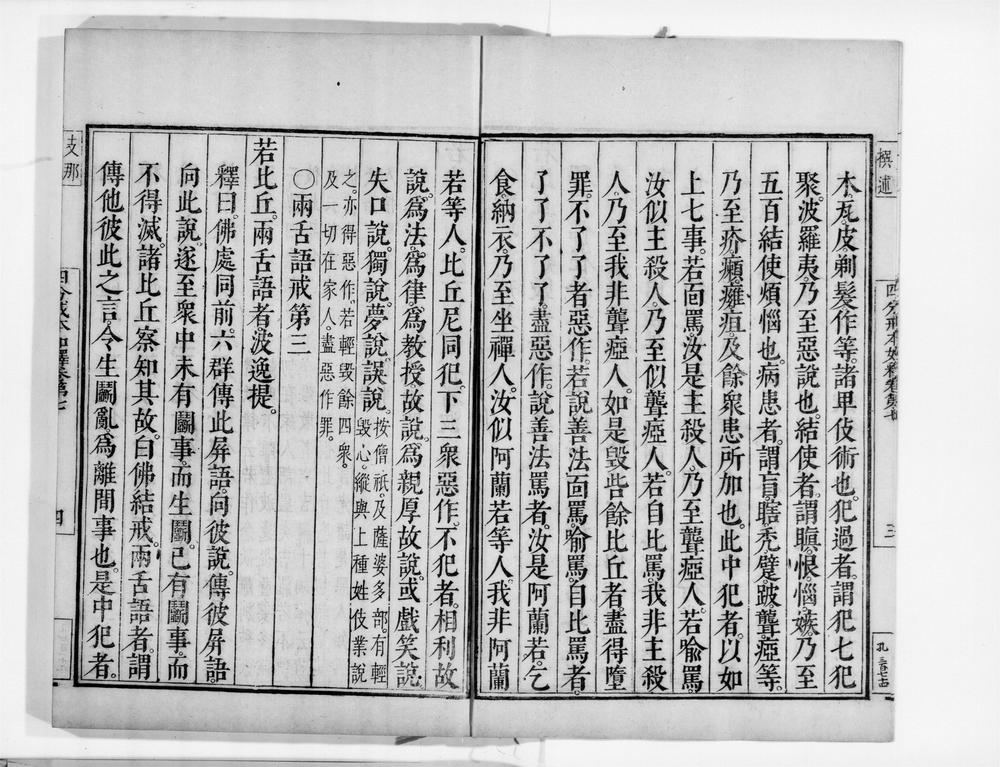 撰述
四分戒本如釋卷第七
三
木瓦皮剃髮作等諸卑伎術也犯過者謂犯七犯
聚波羅夷乃至惡說也結使者謂瞋恨惱嫉乃至
五百結使煩惱也病患者謂盲瞎禿躄跛聾瘂等
乃至疥癩癰疽及餘眾患所加也此中犯者以如
上七事若面罵汝是主殺人乃至聾瘂人若喻罵
汝似主殺人乃至似聾瘂人若自比罵我非主殺
人乃至我非聾瘂人如是毀呰餘比丘者盡得墮
罪不了了者惡作若說善法面罵喻罵自比罵者
了了不了了盡惡作說善法罵者汝是阿蘭若乞
食納衣乃至坐禪人汝似阿蘭若等人我非阿蘭
若等人比丘尼同犯下三眾惡作不犯者相利故
說為法為律為教授故說為親厚故說或戲笑說
失口說獨說夢說誤說按僧祇及薩婆多部有輕
毀心縱與上種姓伎業說
之亦得惡作若輕毀餘四眾
及一切在家人盡惡作罪
〇兩舌語戒第三
若比丘兩舌語者波逸提
釋曰佛處同前六群傳此屏語向彼說傳彼屏語
向此說遂至眾中未有鬬事而生鬬已有鬬事而
不得滅諸比丘察知其故白佛結戒兩舌語者謂
傳他彼此之言令生鬬亂為離間事也是中犯者
支那
四分戒本如釋卷第七
四